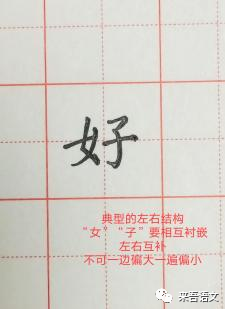 好
典型的左右结构
“女”“子”要相互衬嵌
左右互补
不可一边偏大一遍偏小
来吾语文